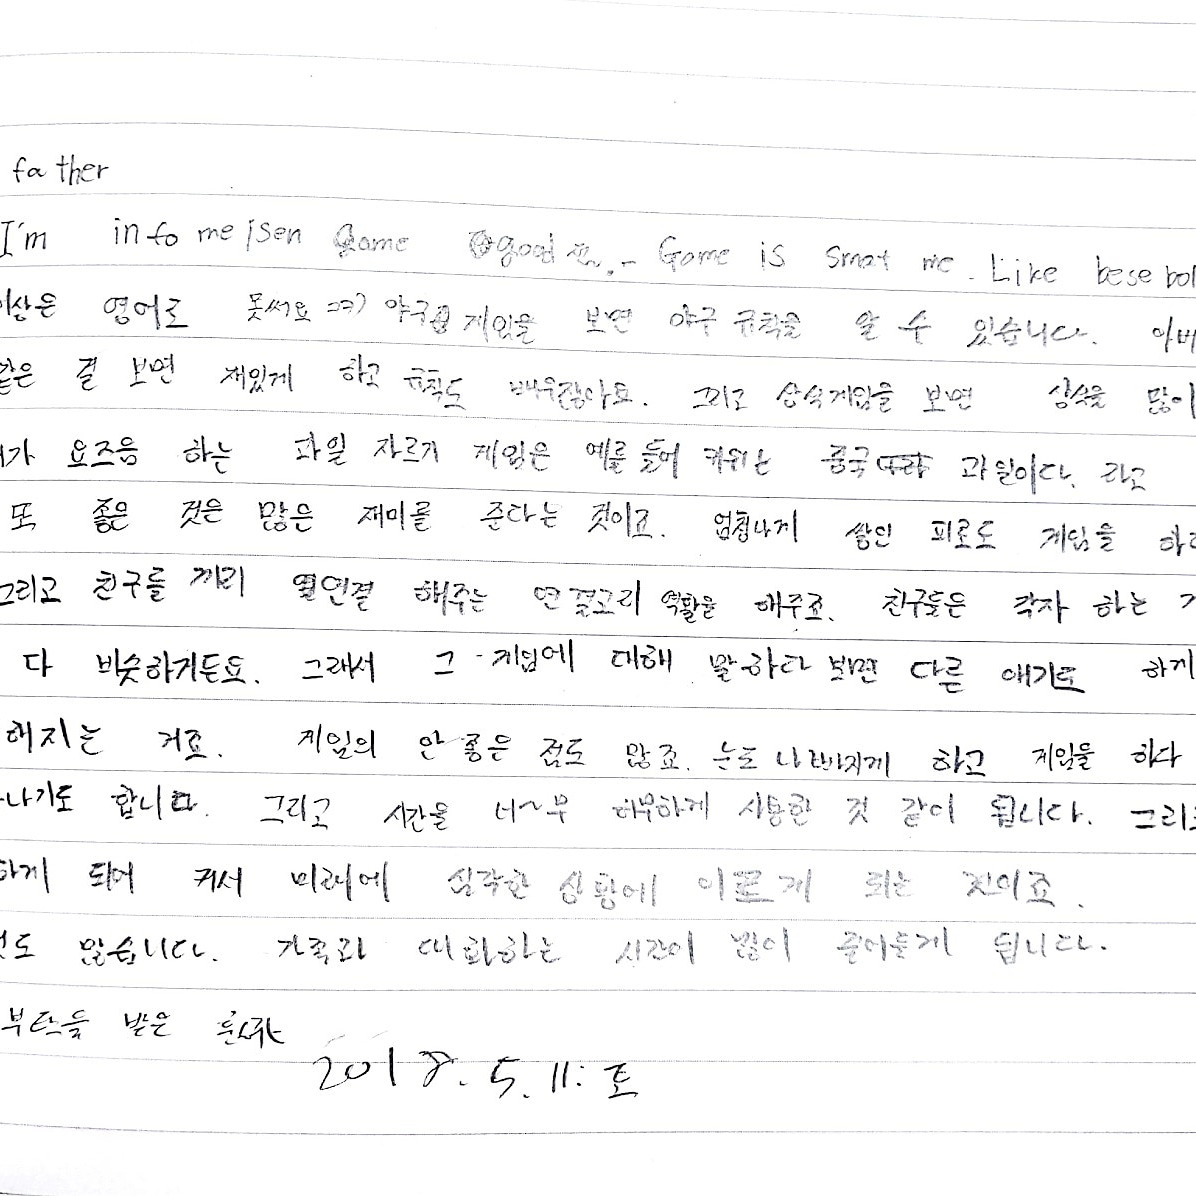 father
I'm info me/sen Game good .- Game is smat me. Like besebol
이상은 영어로 못써요 ㅋㅋ) 야구 게임을 보면 야구 규칙을 알 수 있습니다. 아버
같은 걸 보면 재밌게 하고 규칙도 배우잖아요. 그리고 상식게임을 보면 상식을 많이
가 요즈음 하는 과일 자르기 게임은 예를 들어 키위는 중국 과일이다. 라고
또 좋은 것은 많은 재미를 준다는 것이죠. 엄청나게 쌓인 피로도 게임을 하
그리고 친구들 끼리 연결 해주는 연결고리 역할을 해주죠. 친구들은 각자 하는
다 비슷하거든요. 그래서 그 게임에 대해 말하다 보면 다른 얘기도 하게
해지는 거죠. 게임의 안 좋은 점도 많죠. 눈도 나빠지게 하고 게임을 하다
나기도 합니다. 그리고 시간을 너~무 허무하게 사용한 것 같이 됩니다. 그리고
하게 되어 커서 미래에 심각한 상황에 이르게 되는 것이죠.
도 많습니다. 가족과 대화하는 시간이 많이 줄어들게 됩니다.
부탁을 받은
2018. 5. 11. 토